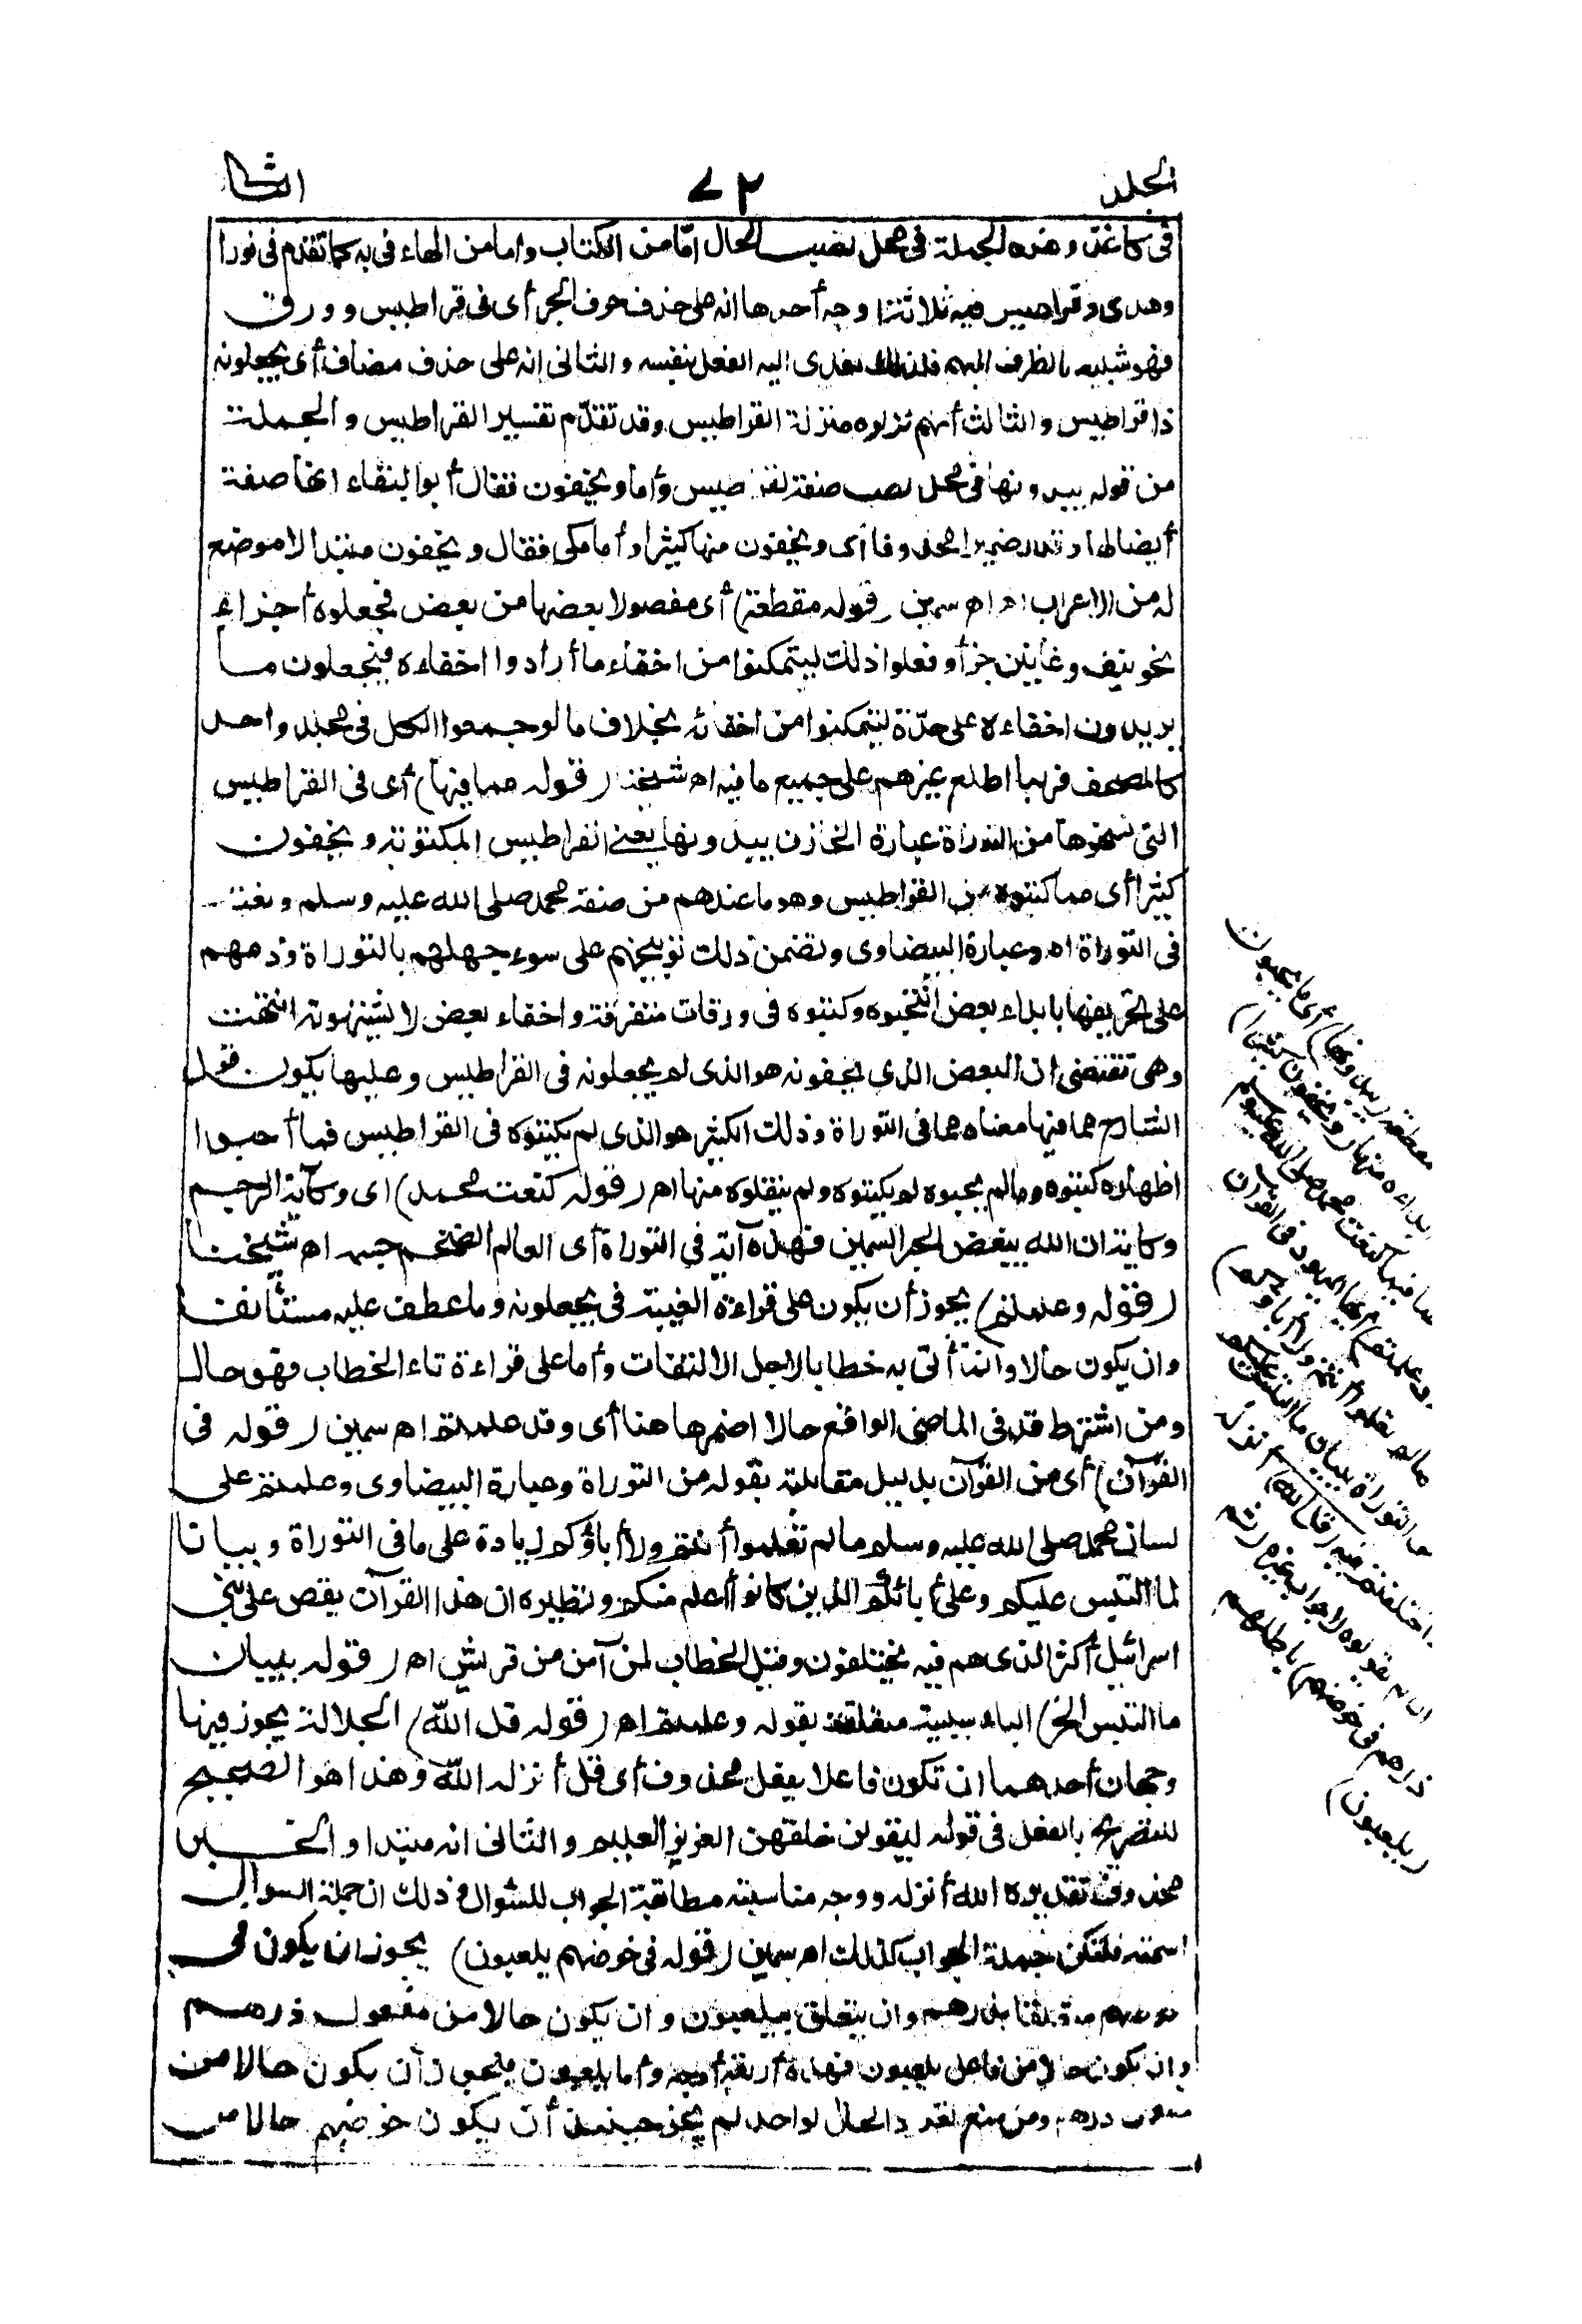 الجلد
٧٢
الثا
في كاغد وهذه الجملة في محل نصب الحال امّا من الكتاب واما من الهاء في به كما تقدم في نورا
وهدى وقراطيس فيه ثلاثة أوجه أحدها انه على حذف حرف الجر أى فى قراطيس وورق
فهو شبيه بالظرف المبهم فلذلك تعدى اليه الفعل بنفسه والثانى انه على حذف مضاف أى يجعلونه
ذا قراطيس والثالث أنهم نزلوه منزلة القراطيس وقد تقدّم تفسير القراطيس والجملة
من قوله يبدونها فى محل نصب صفة لقراطيس وأما ويخفون فقال أبو البقاء انها صفة
أيضا لها وتقدير ضميرا محذوفا أى ويخفون منها كثيرا وأما مكى فقال ويخفون مبتدا لا موضع
له من الاعراب اه اه سمين (قوله مقطعة) أى مفصولا بعضها من بعض فجعلوه أجزاء
نحو نيف وثمانين جزأ وفعلوا ذلك ليتمكنوا من اخفاء ما أرادوا اخفاءه فيجعلون ما
يريدون اخفاءه على حدّة ليتمكنوا من اخفائه بخلاف ما لو جمعوا الكل فى مجلد واحد
كالمصحف فربما اطلع غيرهم على جميع ما فيه اه شيخنا (قوله مما فيها) أى فى القراطيس
التى نسخوها من التوراة عبارة الخازن يبدونها يعنى القراطيس المكتوبة ويخفون
كثيرا أى مما كتبوه فى القراطيس وهو ما عندهم من صفة محمد صلى الله عليه وسلم ونعته
فى التوراة اه وعبارة البيضاوى وتضمن ذلك توبيخهم على سوء جهلهم بالتوراة وذمهم
على تحريفها بابداء بعض انتخبوه وكتبوه فى ورقات متفرقة واخفاء بعض لا يشتهونه انتهت
وهى تقتضى ان البعض الذى يخفونه هو الذى لم يجعلونه فى القراطيس وعليها يكون قول
الشارح مما فيها معناه مما فى التوراة وذلك الكثير هو الذى لم يكتبوه فى القراطيس فما أحبوا
اظهاره كتبوه وما لم يحبوه لم يكتبوه ولم ينقلوه منها اه (قوله كنعت محمد) اى وكآية الرجم
وكاية ان الله يبغض الحبر السمين فهذه آية فى التوراة أى العالم الضخم جسمه اه شيخنا
(قوله وعلمتم) يجوز أن يكون على قراءة الغيبة فى يجعلونه وما عطف عليه مستأنفا
وان يكون حالا وانما أتى به خطابا لاجل الالتفات وأما على قراءة تاء الخطاب فهو حال
ومن اشترط قد فى الماضى الواقع حالا اضمرها هنا أى وقد علمتم اه سمين (قوله فى
القرآن) أى من القرآن بدليل مقابلته بقوله من التوراة وعبارة البيضاوى وعلمتم على
لسان محمد صلى الله عليه وسلم ما لم تعلموا أنتم ولا أباؤكم زيادة على ما فى التوراة وبيانا
لما التبس عليكم وعلى أبائكم الذين كانوا أعلم منكم ونظيره ان هذا القرآن يقص على بنى
اسرائيل أكثر الذى هم فيه يختلفون وقيل الخطاب لمن آمن من قريش اه (قوله ببيان
ما التبس الخ) الباء سببية متعلقة بقوله وعلمتم اه (قوله قل الله) الجلالة يجوز فيها
وجهان أحدهما ان تكون فاعلا بفعل محذوف أى قل أنزله الله وهذا هو الصحيح
للتصريح بالفعل فى قوله ليقولن خلقهن العزيز العليم والثانى انه مبتدا والخبر
محذوف تقديره الله أنزله ووجه مناسبته مطابقة الجواب للسؤال وذلك ان جملة السوال
اسمية فلتكن جملة الجواب كذلك اه سمين (قوله فى خوضهم يلعبون) يجوز ان يكون فى
خوضهم متعلقا بذرهم وان يتعلق بيلعبون وان يكون حالا من مفعول ذرهم
وان يكون حالا من فاعل يلعبون فهذه أربعة أوجه وأما يلعبون فيجوز أن يكون حالا من
مفعول ذرهم ومن منع تعدد الحال لواحد لم يجز حينئذ أن يكون خوضهم حالا من
مقطعة (يبدونها) أى ما يحبون
ابداءه منها (ويخفون كثيرا)
مما فيها كنعت محمد صلى الله عليه وسلم
(وعلمتم) أيها اليهود فى القرآن
ما لم تعلموا أنتم ولا آباؤكم)
من التوراة ببيان ما التبس عليكم
واختلفتم فيه (قل الله) أنزله
ان لم يقولوه لا جواب غيره (ثم
ذرهم فى خوضهم) باطلهم
(يلعبون)